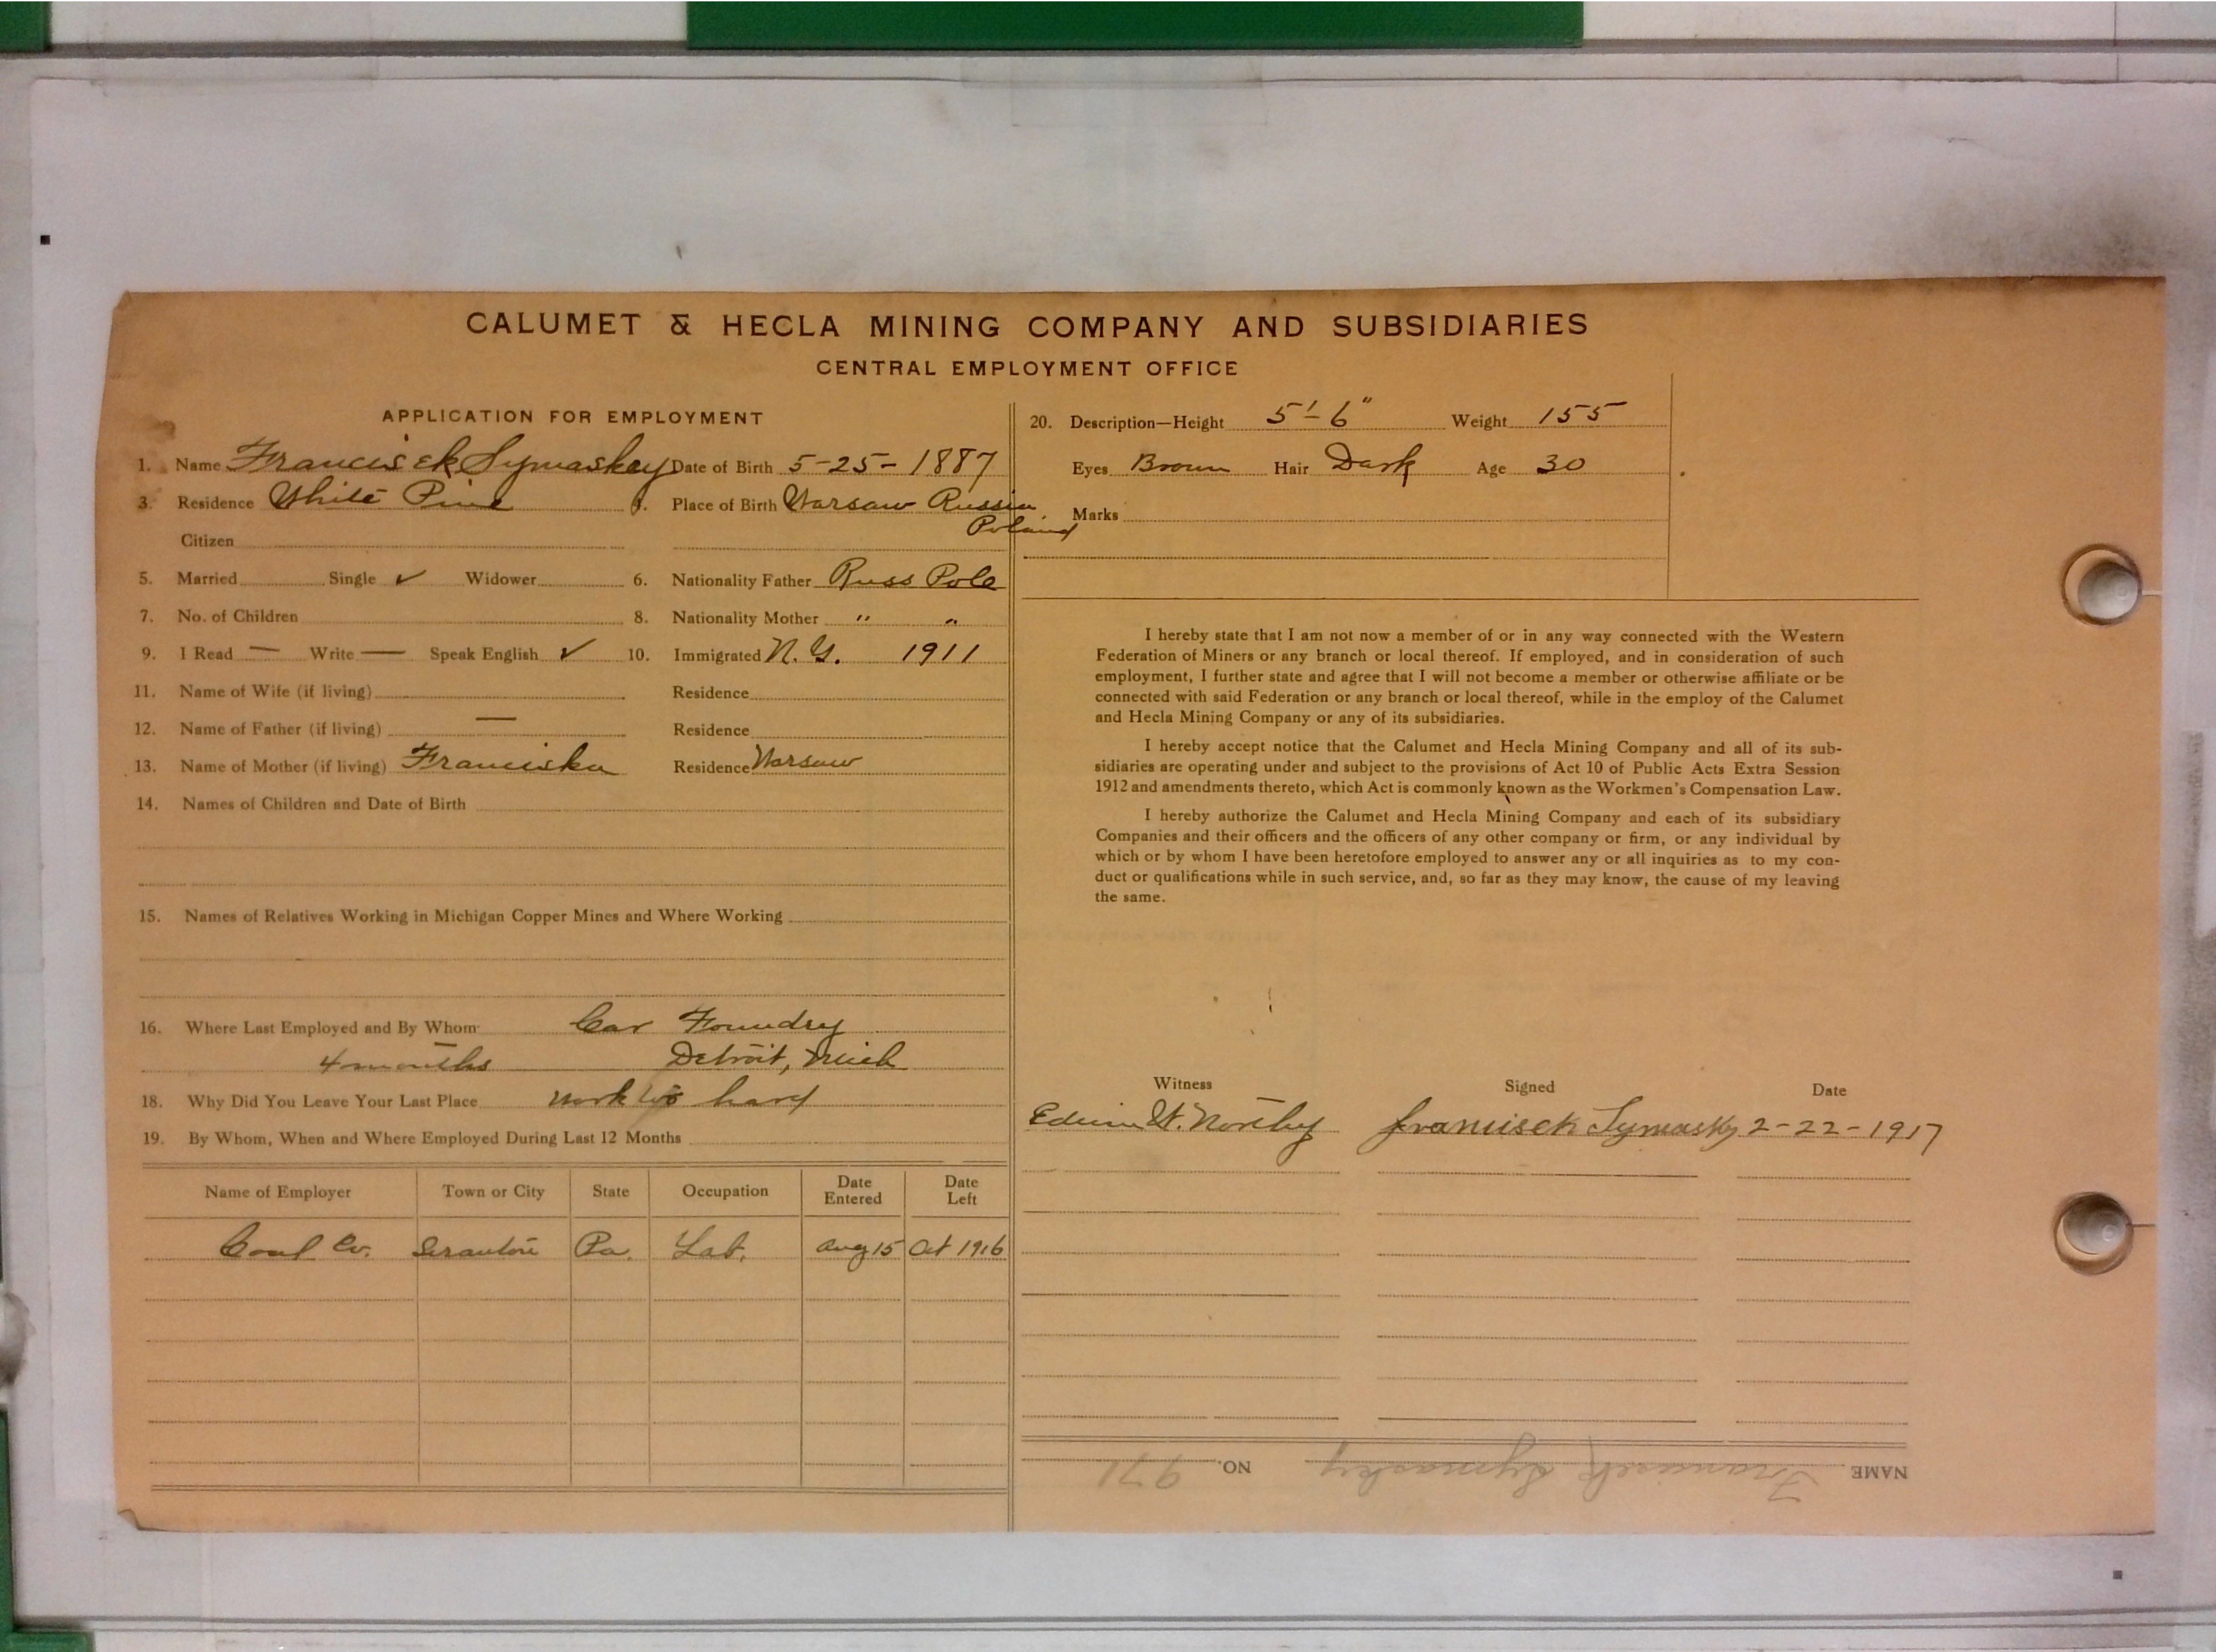 CALUMET & HECLA MINING COMPANY AND SUBSIDIARIES
CENTRAL EMPLOYMENT OFFICE
APPLICATION FOR EMPLOYMENT
1. Name Francisek Symaskey Date of Birth 5-25-1887
3. Residence White Pine Place of Birth Warsaw Russia
Poland
Citizen
5. Married Single ✓ Widower 6. Nationality Father Russ Pole
7. No. of Children 8. Nationality Mother " "
9. I Read — Write — Speak English ✓ 10. Immigrated N.Y. 1911
11. Name of Wife (if living) Residence
12. Name of Father (if living) — Residence
13. Name of Mother (if living) Franciska Residence Warsaw
14. Names of Children and Date of Birth
15. Names of Relatives Working in Michigan Copper Mines and Where Working
16. Where Last Employed and By Whom Car Foundry
4 months Detroit, Mich
18. Why Did You Leave Your Last Place work too hard
19. By Whom, When and Where Employed During Last 12 Months
Name of Employer Town or City State Occupation Date Entered Date Left
Coal Co. Scranton Pa. Lab. Aug 15 Oct 1916
20. Description—Height 5'-6" Weight 155
Eyes Brown Hair Dark Age 30
Marks
I hereby state that I am not now a member of or in any way connected with the Western
Federation of Miners or any branch or local thereof. If employed, and in consideration of such
employment, I further state and agree that I will not become a member or otherwise affiliate or be
connected with said Federation or any branch or local thereof, while in the employ of the Calumet
and Hecla Mining Company or any of its subsidiaries.
I hereby accept notice that the Calumet and Hecla Mining Company and all of its sub-
sidiaries are operating under and subject to the provisions of Act 10 of Public Acts Extra Session
1912 and amendments thereto, which Act is commonly known as the Workmen's Compensation Law.
I hereby authorize the Calumet and Hecla Mining Company and each of its subsidiary
Companies and their officers and the officers of any other company or firm, or any individual by
which or by whom I have been heretofore employed to answer any or all inquiries as to my con-
duct or qualifications while in such service, and, so far as they may know, the cause of my leaving
the same.
Witness Signed Date
Edwin W. Norlby Francisek Symasky 2-22-1917
NAME Francisek Symaskey NO. 971